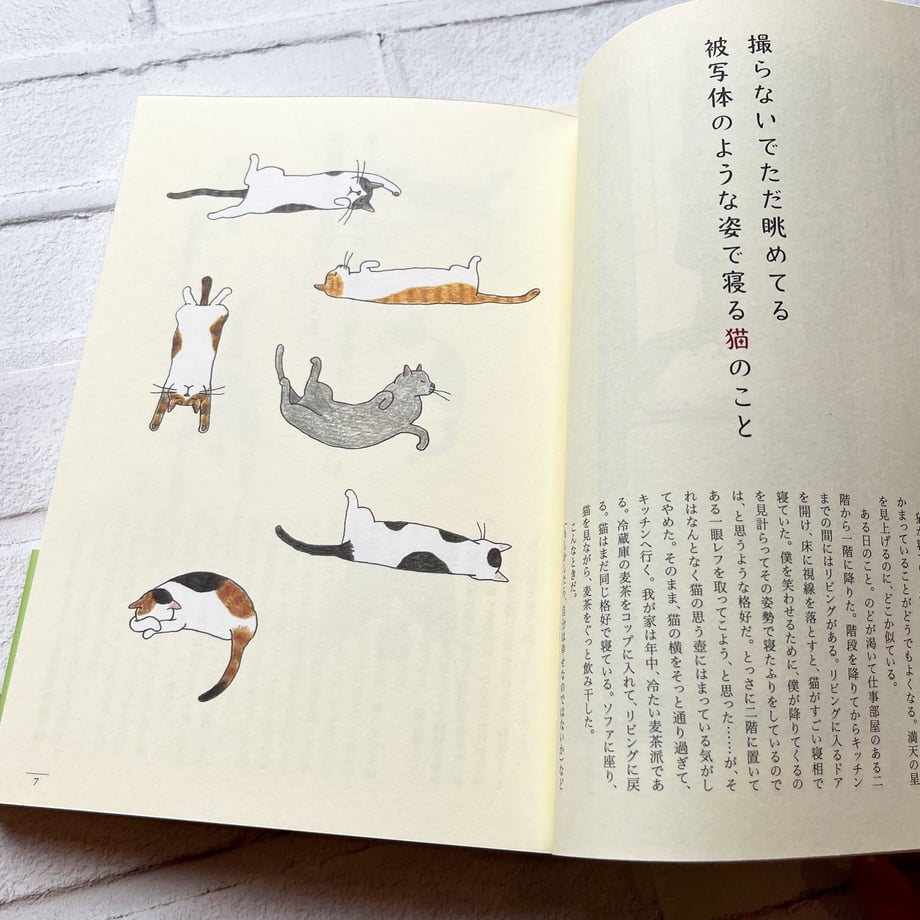 撮らないでただ眺めてる
被写体のような姿で寝る猫のこと
かまっていることがどうでもよくなる。満天の星
を見上げるのに、どこか似ている。
ある日のこと。のどが渇いて仕事部屋のある二
階から一階に降りた。階段を降りてからキッチン
までの間にはリビングがある。リビングに入るドア
を開け、床に視線を落とすと、猫がすごい寝相で
寝ていた。僕を笑わせるために、僕が降りてくるの
を見計らってその姿勢で寝たふりをしているので
は、と思うような格好だ。とっさに二階に置いて
ある一眼レフを取ってこよう、と思った………が、そ
れはなんとなく猫の思う壺にはまっている気がし
てやめた。そのまま、猫の横をそっと通り過ぎて、
キッチンへ行く。我が家は年中、冷たい麦茶派であ
る。冷蔵庫の麦茶をコップに入れて、リビングに戻
る。猫はまだ同じ格好で寝ている。ソファに座り、
猫を見ながら、麦茶をぐっと飲み干した。
こんなときだ。
自分は幸せなのではないか、など
7